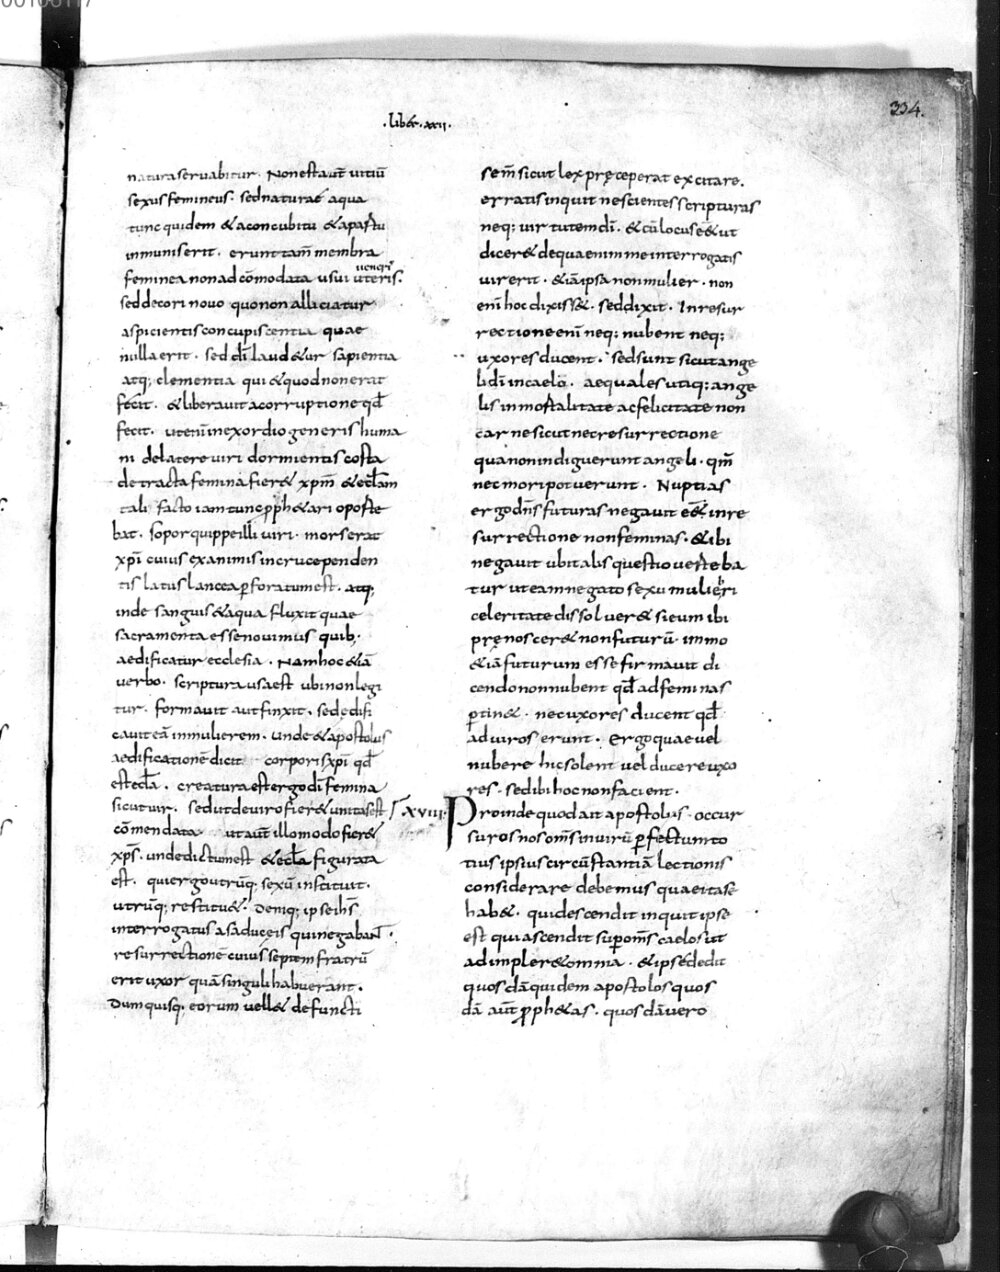 334.
.liber.xxii.
natura seruabitur. Non est aut̄ uitiū
sexus femineus. sed natura& aqua
tunc quidem & a concubitu & a partu
inmunis erit. erunt tam̄ membra
feminea non ad cōmodata usui ueteris.
sed decori nouo quo non alliciatur
aspicientis concupiscentia quae
nulla erit. sed dī laud&ur sapientia
atq; clementia qui & quod non erat
fecit. & liberauit a corruptione qd̄
fecit. ut enī in exordio generis huma
ni de latere uiri dormientis costa
detracta femina fier& xpm̄ & eccłam
tali facto iam tunc proph&ari oporte
bat. sopor quippe illi uiri. mors erat
xpī cuius exanimis in cruce penden
tis latus lancea perforatum est. atq;
inde sanguis & aqua fluxit quae
sacramenta esse nouimus quib;
aedificatur ecclesia. Nam hoc &iā
uerbo. scriptura usa est ubi non legi
tur. formauit aut finxit. sed ędifi
cauit eā in mulierem. unde & apostolus
aedificationē dicit corporis xpī qd̄
est eccła. creatura est ergo dī femina
sicut uir. sed ut de uiro fier& unitas est
cōmendata ut aut̄ illo modo fier&
xps̄. unde dictum est & eccła figurata
est. qui ergo utrūq; sexū instituit.
utrūq; restitu&. Deniq; ipse ihs̄
interrogatus a saduceis qui negabant.
resurrectionē cuius septem fratrū
erit uxor quā singuli habuerant.
Dum quisq. eorum uell& defuncti
sem̄ sicut lex pręceperat excitare.
erratis inquit nescientes scripturas
neq; uirtutem dī. & cū locus ess& ut
dicer& de qua enim me interrogatis
uir erit. &iā ipsa non mulier. non
enī hoc dixiss&. sed dixit. In resur
rectione enī neq; nubent neq;
uxores ducent. sed sunt sicut ange
li dī in caelo. aequales utiq; ange
lis inmortalitate ac felicitate non
carne sicut nec resurrectione
qua non indiguerunt angeli. qm̄
nec mori potuerunt. Nuptias
ergo dn̄s futuras negauit eē in re
surrectione non feminas. & ibi
negauit ubi talis questio uerteba
tur ut eam negato sexu mulieri
celeritate dissoluer& si eum ibi
pręnoscer& non futurū. immo
&iā futurum esse firmauit di
cendo non nubent qd̄ ad feminas
ptin&. nec uxores ducent qd̄
ad uiros erunt. Ergo quae uel
nubere hic solent uel ducere uxo
res. sed ibi hoc non facient.
xviii. Proinde quod ait apostolus. occur
suros nos om̄s in uirū perfectum to
tius ipsius circūstantiā lectionis
considerare debemus quae ita se
hab&. qui descendit inquit ipse
est qui ascendit super om̄s caelos ut
adimpler& omnia. & ipse dedit
quosdā quidem apostolos quos
dā aut̄ proph&as. quosdā uero